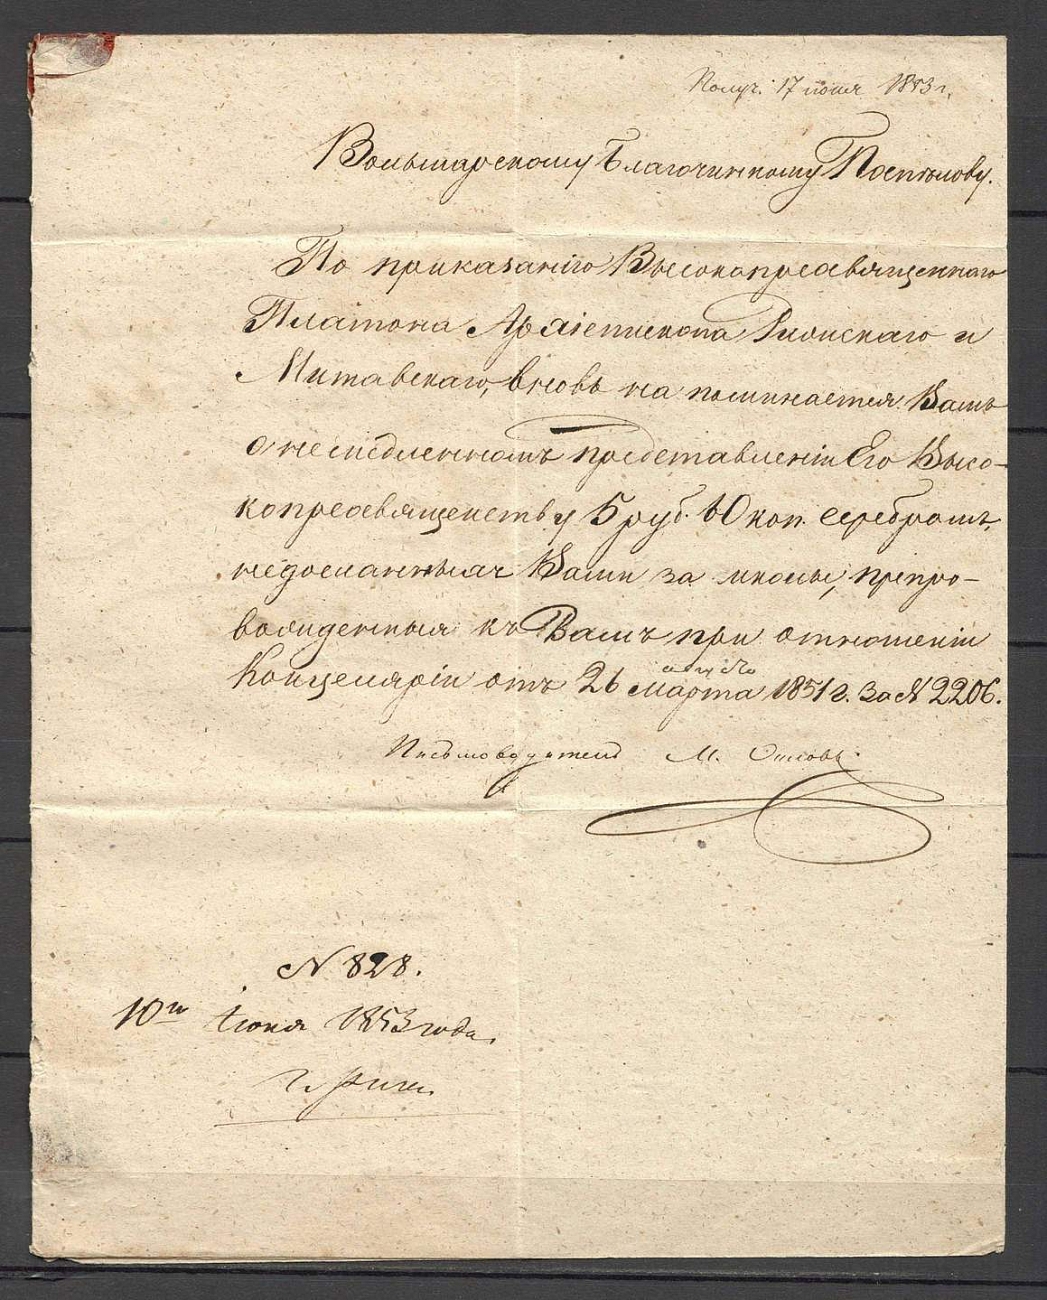 Получ. 17 июня 1853 г.
Вольмарскому Благочинному Поспѣлову.
По приказанію Высокопреосвященнаго
Платона Архіепископа Рижскаго и
Митавскаго, вновь напоминается Вамъ
о немедленномъ представленіи Его Высо-
копреосвященству 5 руб. 10 коп. серебромъ,
недосланныхъ Вами за школы, препро-
вожденныя къ Вамъ при отношеніи
Канцеляріи отъ 26 марта 1851 г. за № 2206.
Письмоводитель М.
№ 828.
10го Іюня 1853 года.
г. Рига.